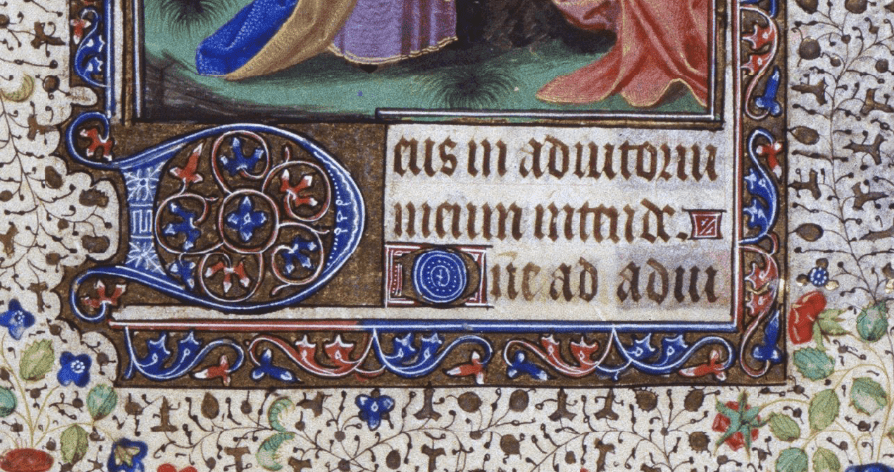 Deus in adiutoriu
meum intende.
Dne ad adiu